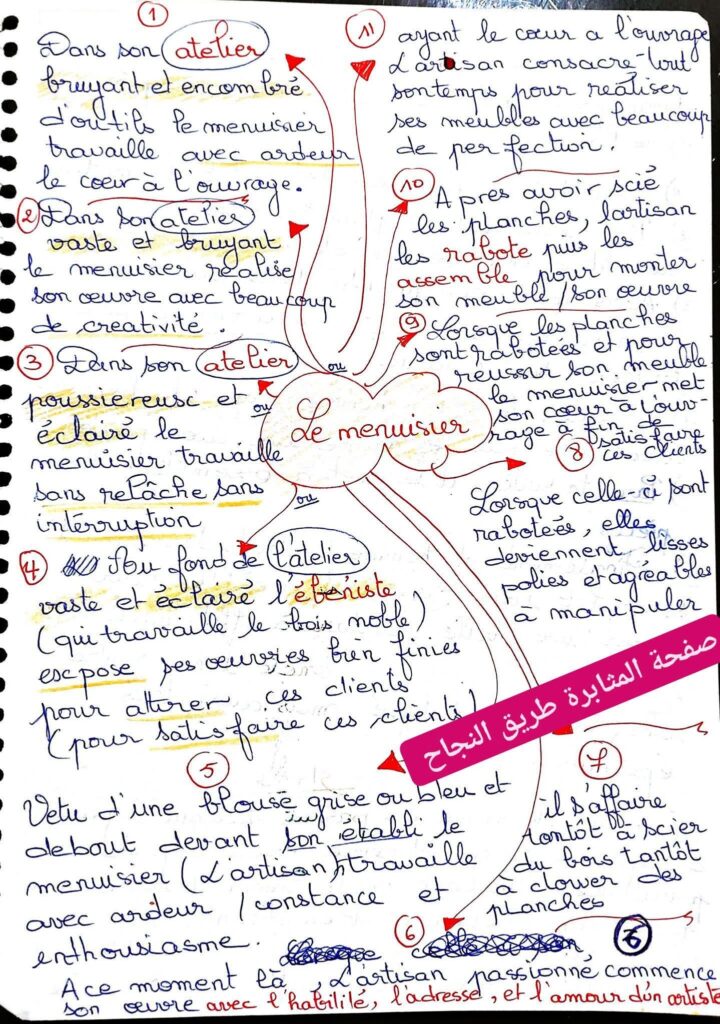 1
Dans son atelier
bruyant et encombré
d'outils le menuisier
travaille avec ardeur
le cœur à l'ouvrage.
2 Dans son atelier
vaste et bruyant
le menuisier realise
son œuvre avec beaucoup
de creativité.
3 Dans son atelier
poussiereusc et
éclairé le
menuisier travaille
sans relâche sans
intérruption
4 Au fond de l'atelier
vaste et éclairé l'ébeniste
(qui travaille le bois noble)
escpose ses œuvres bien finies
pour attirer ces clients
(pour satisfaire ces clients)
5
Vetu d'une blouse grise ou bleu et
debout devant son etabli le
menuisier (L'artisan) travaille
avec ardeur / constance et
enthousiasme.
6
6
A ce moment là, L'artisan passionné commence
son œuvre avec l'habilité, l'adresse, et l'amour d'un artiste
7
il s'affaire
tontôt à scier
du bois tantôt
à clower des
planches
8
Lorsque celle-ci sont
raboteés, elles
deviennent lisses
polies et agréables
à manipuler
9 Lorsque les planches
sont rabotées et pour
reussir son meuble
le menuisier met
son cœur à l'ouv-
rage à fin de
satisfaire
ces clients
10
A pres avoir scié
les planches, l'artisan
les rabote puis les
assemble pour monter
son meuble / son œuvre
11 ayant le cœur a l'ouvrage
L'artisan consacre tout
son temps pour realiser
ses meubles avec beaucoup
de perfection.
Le menuisier
ou
ou
ou
صفحة المثابرة طريق النجاح